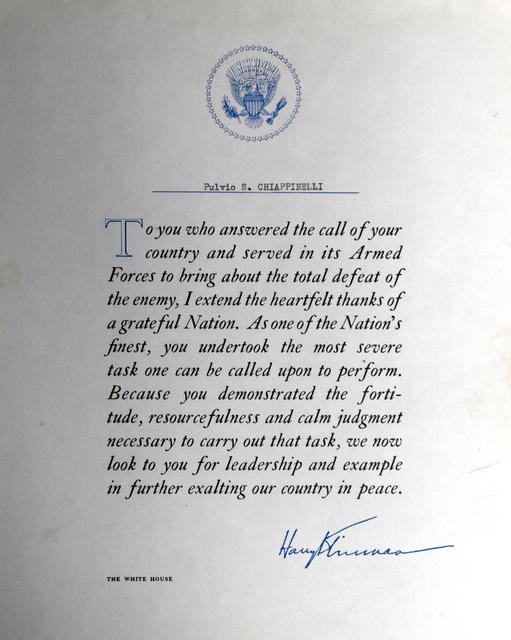 Pulvio S. CHIAPPINELLI
To you who answered the call of your
country and served in its Armed
Forces to bring about the total defeat of
the enemy, I extend the heartfelt thanks of
a grateful Nation. As one of the Nation's
finest, you undertook the most severe
task one can be called upon to perform.
Because you demonstrated the forti-
tude, resourcefulness and calm judgment
necessary to carry out that task, we now
look to you for leadership and example
in further exalting our country in peace.
Harry Truman
THE WHITE HOUSE